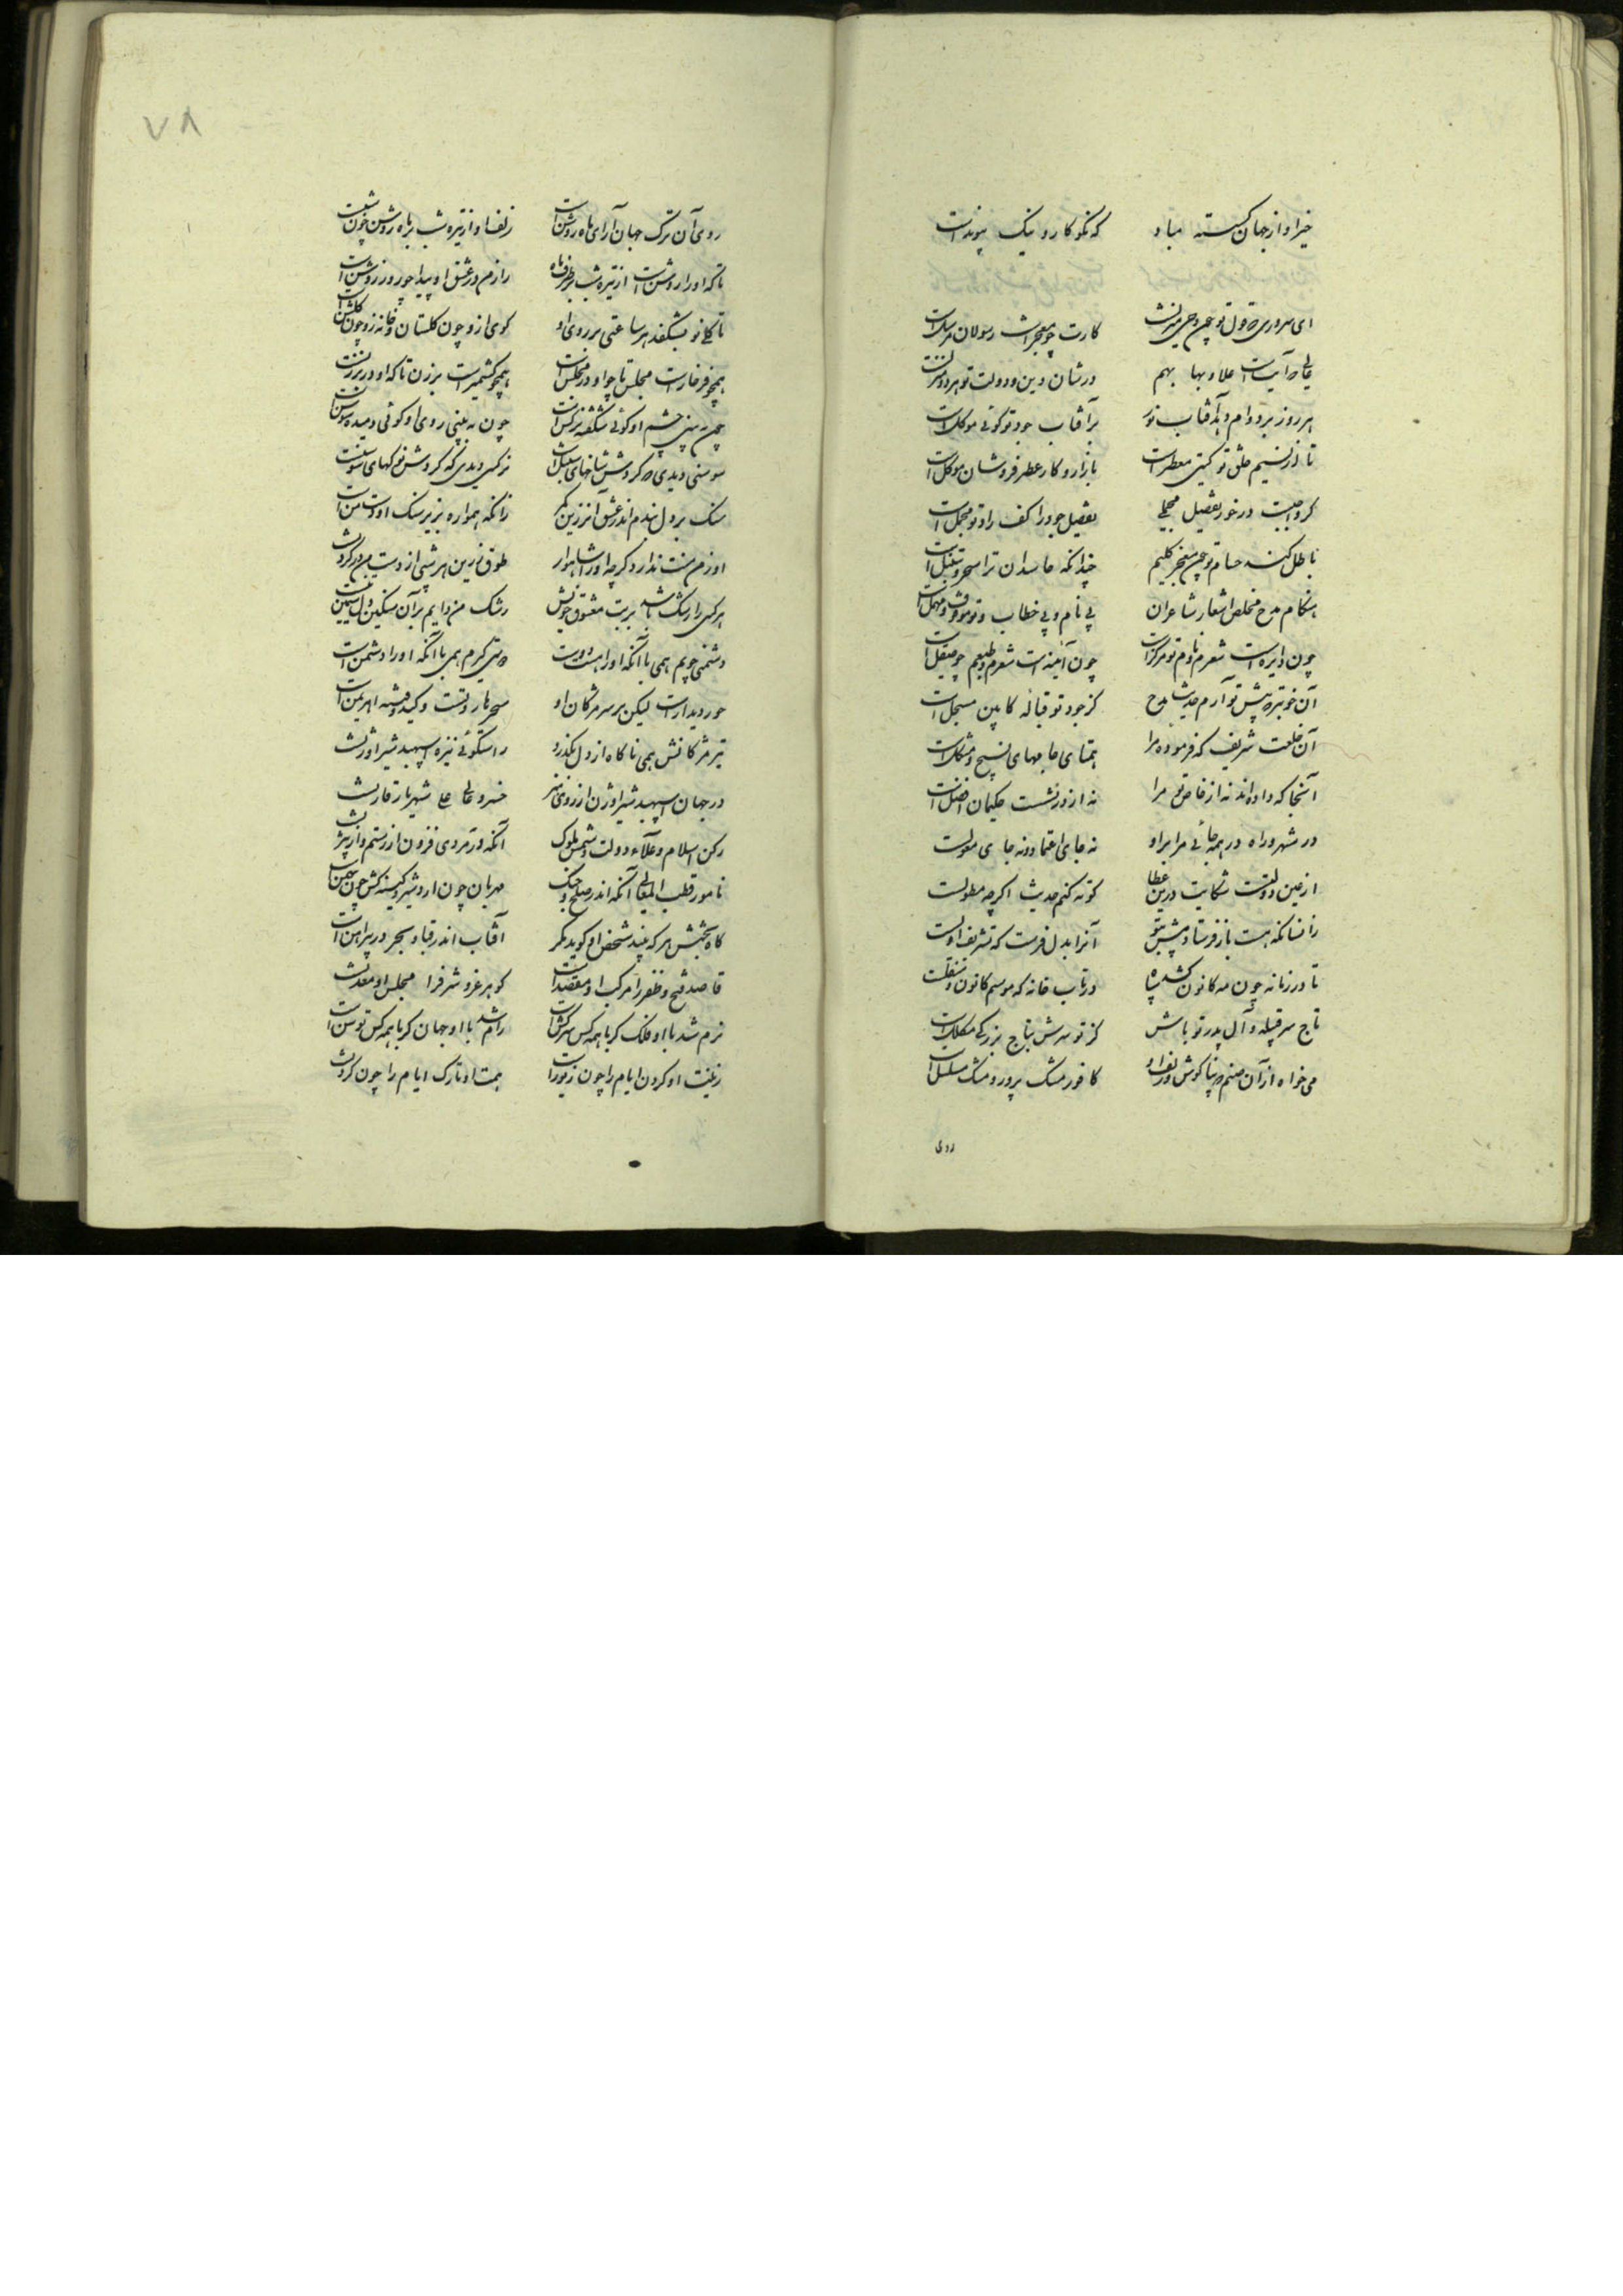 خیر او از جهان گسسته مباد که نکوکار و نیک پیوند است
ای سروری که قول تو چون وحی منزلست کارت چو معجزات رسولان مرسل است
عالی که آیت است علا و بها بهم در شان دین و دولت تو هر دو منزلست
هر روز بر دوام دهد آفتاب نور بر آفتاب جود تو گوئی موکل است
تا از نسیم خلق تو گیتی معطر است بازار و کار عطرفروشان
گر واجبست در خور تفصیل مجملی تفصیل جود را کف راد تو مجمل است
باطل کند حسام تو چون معجز کلیم چندانکه حاسدان ترا سحر و تنبل است
هنگام مدح مخلص اشعار شاعران بی نام و بی خطاب تو موقوف و مهمل است
چون دایره است شعرم و نام تو مرکز است چون آینه است شعرم و طبعم چو صیقل است
آن خوبتر که پیش تو آرم حدیث مدح کز جود تو قباله کابین مسجل است
آن خلعت شریف که فرموده مرا همتای جامهای نسیج و مشکل است
آنجا که داده‌اند نه از خاص تو مرا نه از در نشست حکیمان افضل است
در شهر و راه در همه جائی مرا بر او نه جای اعتماد و نه جای معولست
از عین دولتست شکایت درین عطا کوته کنم حدیث اگرچه مطولست
زانسانکه هست باز فرستاد پیش تو آنرا بدل فرست که تشریف اولست
تا در زمانه چون مه کانون کشد سپاه در تاب خانه که موسم کانون و منقلست
تاج سر قبیله و آل پدر تو باش کز تو سرش بتاج بزرگی مکلل است
می خواه از آن صنم که بناگوش و زلف او کافور مشک پرور و مشک مسلسل است
روی
۷۸
روی آن ترک جهان آرای ماه روشن است زلف او از تیره شب بر ماه روشن چون
تا که او را روشن است از تیره شب بر طرف ماه رازم در عشق او پیدا چو روز روشن است
تا گل نو بشکفد هر ساعتی بر روی او کوی ازو چون گلستان و خانه زو چون گلشن است
همچو فرخار است مجلس تا چو او در مجلس است همچو کشمیر است برزن تا که او در برزنست
چون ببینی چشم او گوئی شکفته نرگس است چون ببینی روی او گوئی دمیده سوسن است
سوسنی دیدی که گردش شاخهای سنبل است نرگسی دیدی که گردش نوکهای سوزنست
سنگ بر دل نهادم اندر عشق آن زرین کمر زانکه همواره بزیر سنگ او دست من است
او ز من منت ندارد گرچه او را شاهوار طوق زرین هر شبی از دست من در گردنست
هر کسی را رشک باشد بر بت معشوق خویش رشک من دایم بر آن سنگین دل سیمین
دشمنی جویم همی با آنکه او را هست دوست دوستی گیرم همی با آنکه او را دشمن است
حور دیدار است لیکن بر سر مژگان او سحر هاروتست و کید و فتنه اهریمن است
تیر مژگانش همی ناگاه از دل بگذرد راستگوئی نیزه اسپهبد شیر اوژنست
در جهان اسپهبد شیر اوژن از روی هنر خسرو عالی علی شهریار قارنست
رکن اسلام و علاء دولت و شمس ملوک آنکه در مردی فزون از رستم و از بیژنست
نامور قطب المعالی آنکه اندر صلح و جنگ مهربان چون اردشیر و کینه کش چون بهمن است
گاه بخشش هر که بیند شخص او گوید مگر آفتاب اندر قبا و بحر در پیراهن است
قاصد فتح و ظفر را مرکب او مقصد است گوهر عز و شرف را مجلس او معدنست
نرم شد با او فلک گر با همه کس سرکش است رام شد با او جهان گر با همه کس توسن است
زینت او گردن ایام را چون زیور است همت او تارک ایام را چون گرزنست